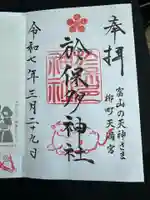 奉拝
富山の天神さま
柳町天満宮
於保多神社
令和七年三月二十九日